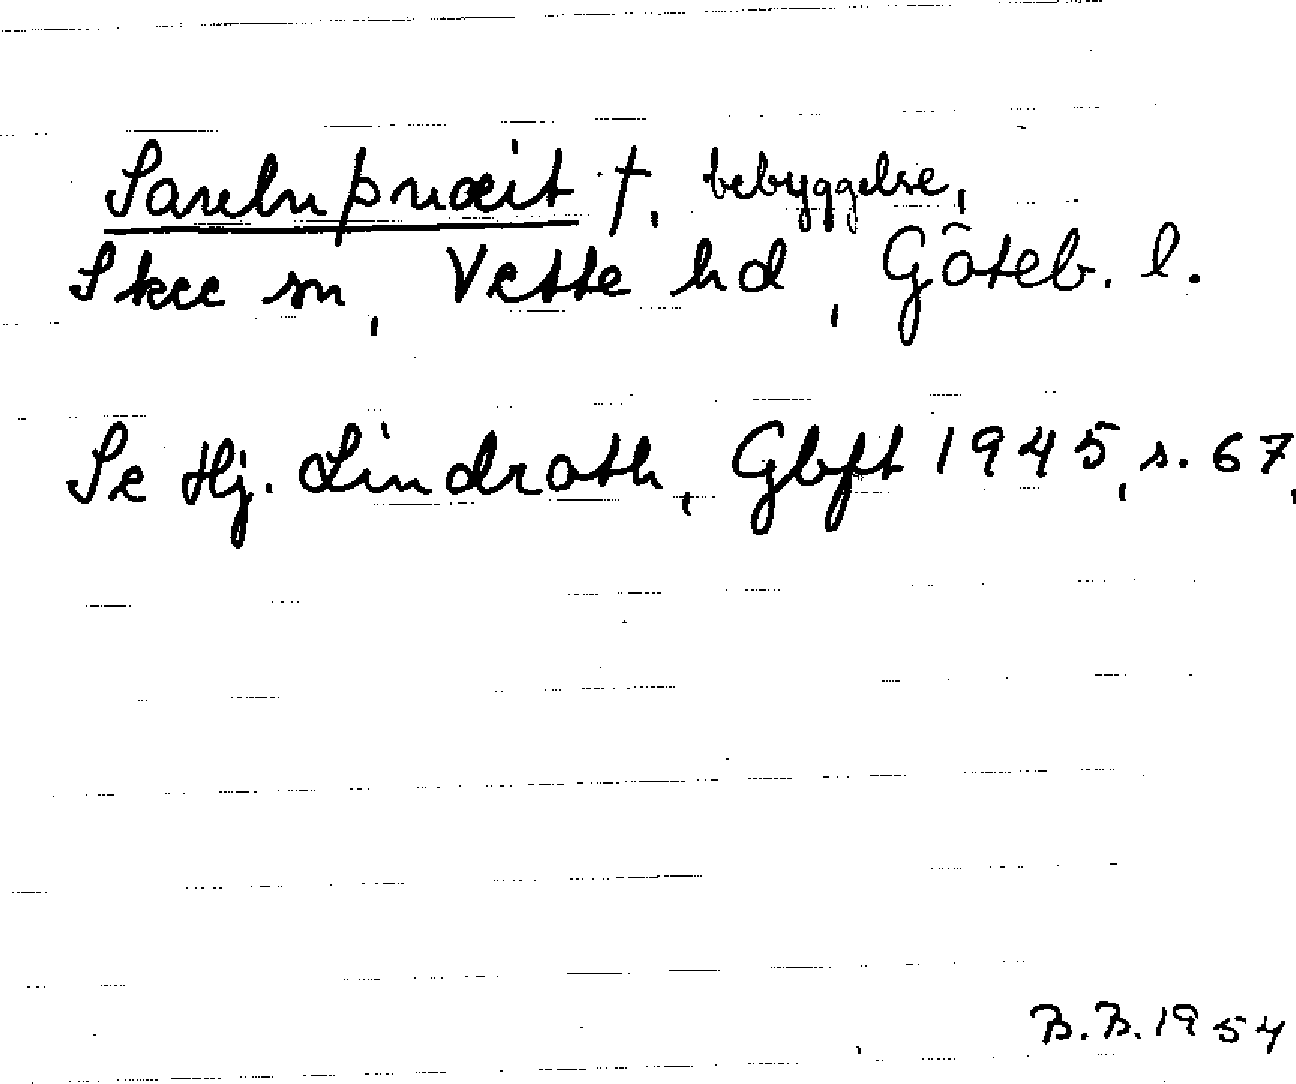 Sarelnþuæit †, bebyggelse,
Skee sn, Vette hd, Göteb. l.
Se Hj. Lindroth, Gbft 1945, s. 67,
B.B. 1954